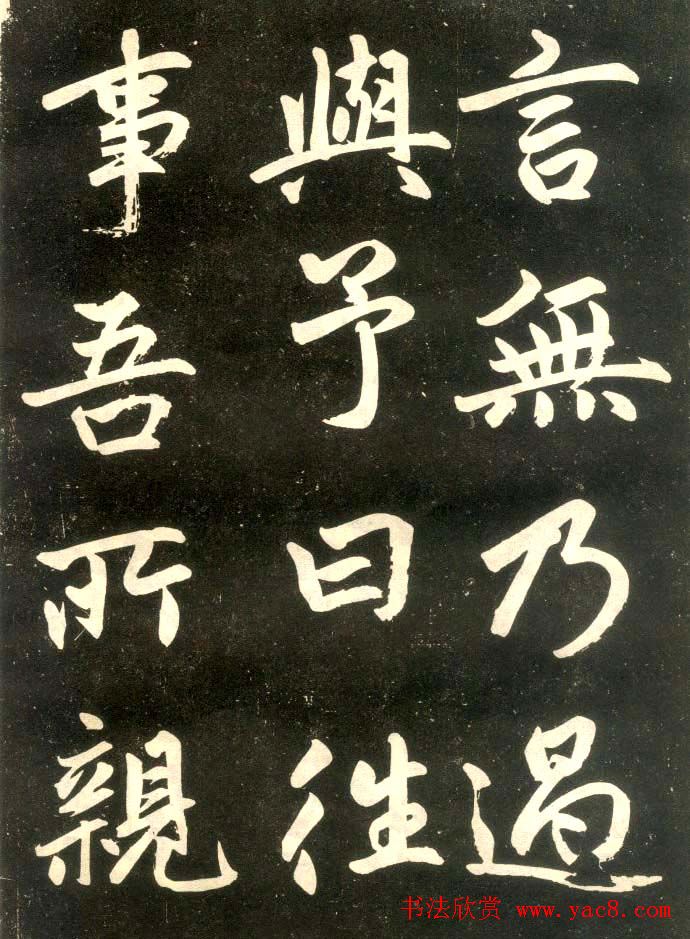 言無乃過
與予曰往
事吾所親
书法欣赏 www.yac8.com